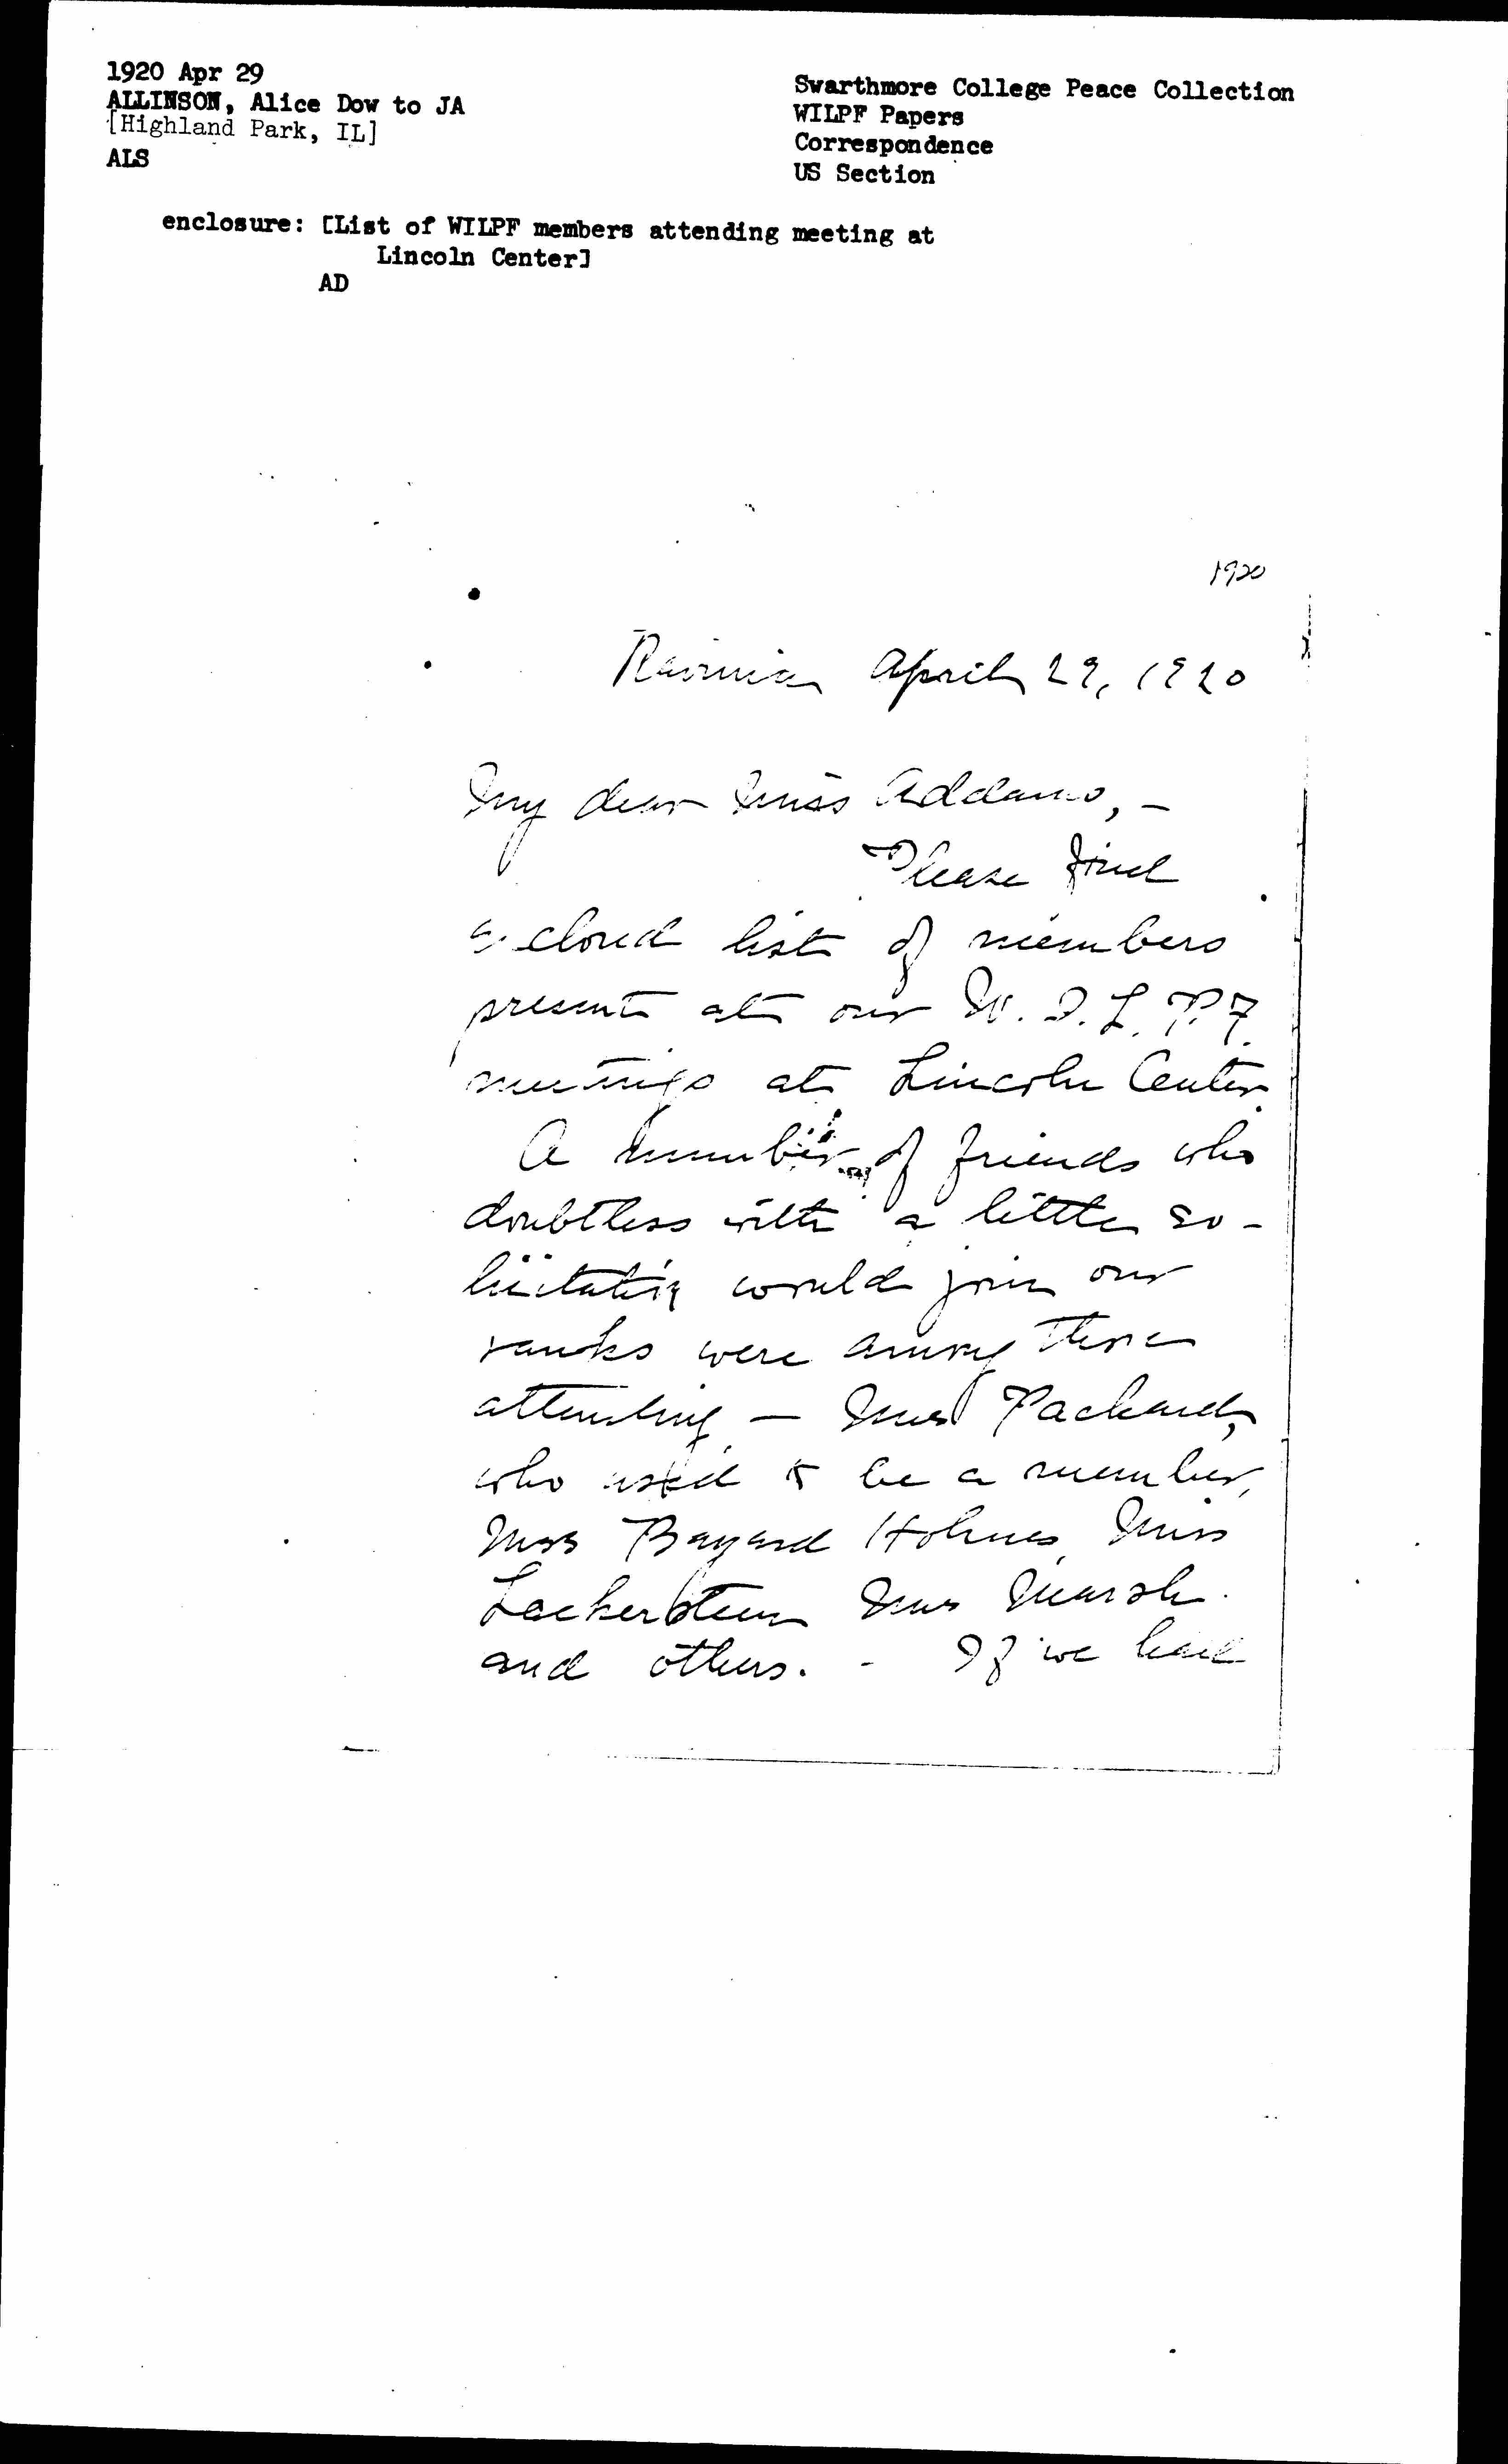 1920 Apr 29
ALLINSON, Alice Dow to JA
[Highland Park, IL]
ALS
Swarthmore College Peace Collection
WILPF Papers
Correspondence
US Section
enclosure: [List of WILPF members attending meeting at
Lincoln Center]
AD
1920
Ravinia April 29, 1920
My dear Miss Addams, –
Please find
list of members
present at our W. I. L. P. F.
meetings at Lincoln Center.
A number of friends who
doubtless with a little so-
licitation would join our
ranks were among those
attending – Packard,
who used to be a member,
Mrs Bayard Holmes, Miss
Lackersteen Marsh.
and others. - If we had